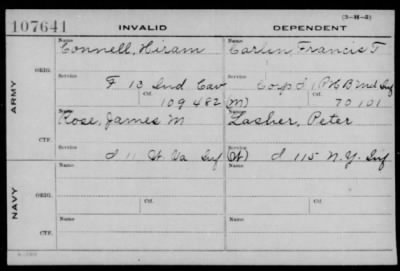 (3-H-2)
107641 INVALID DEPENDENT
Name Name
Connell, Hiram Carlin, Francis T
ORIG.
Service Service
F 13 Ind Cav Corps d'
Ctf. Ctf.
109482 (m) 70101
ARMY
Name Name
Rose, James M Lasher, Peter
CTF.
Service Service
d 11 Inf (W) d 115 N.Y. Inf
Name Name
ORIG.
Service Ctf. Service Ctf.
NAVY
Name Name
CTF.
Service Service